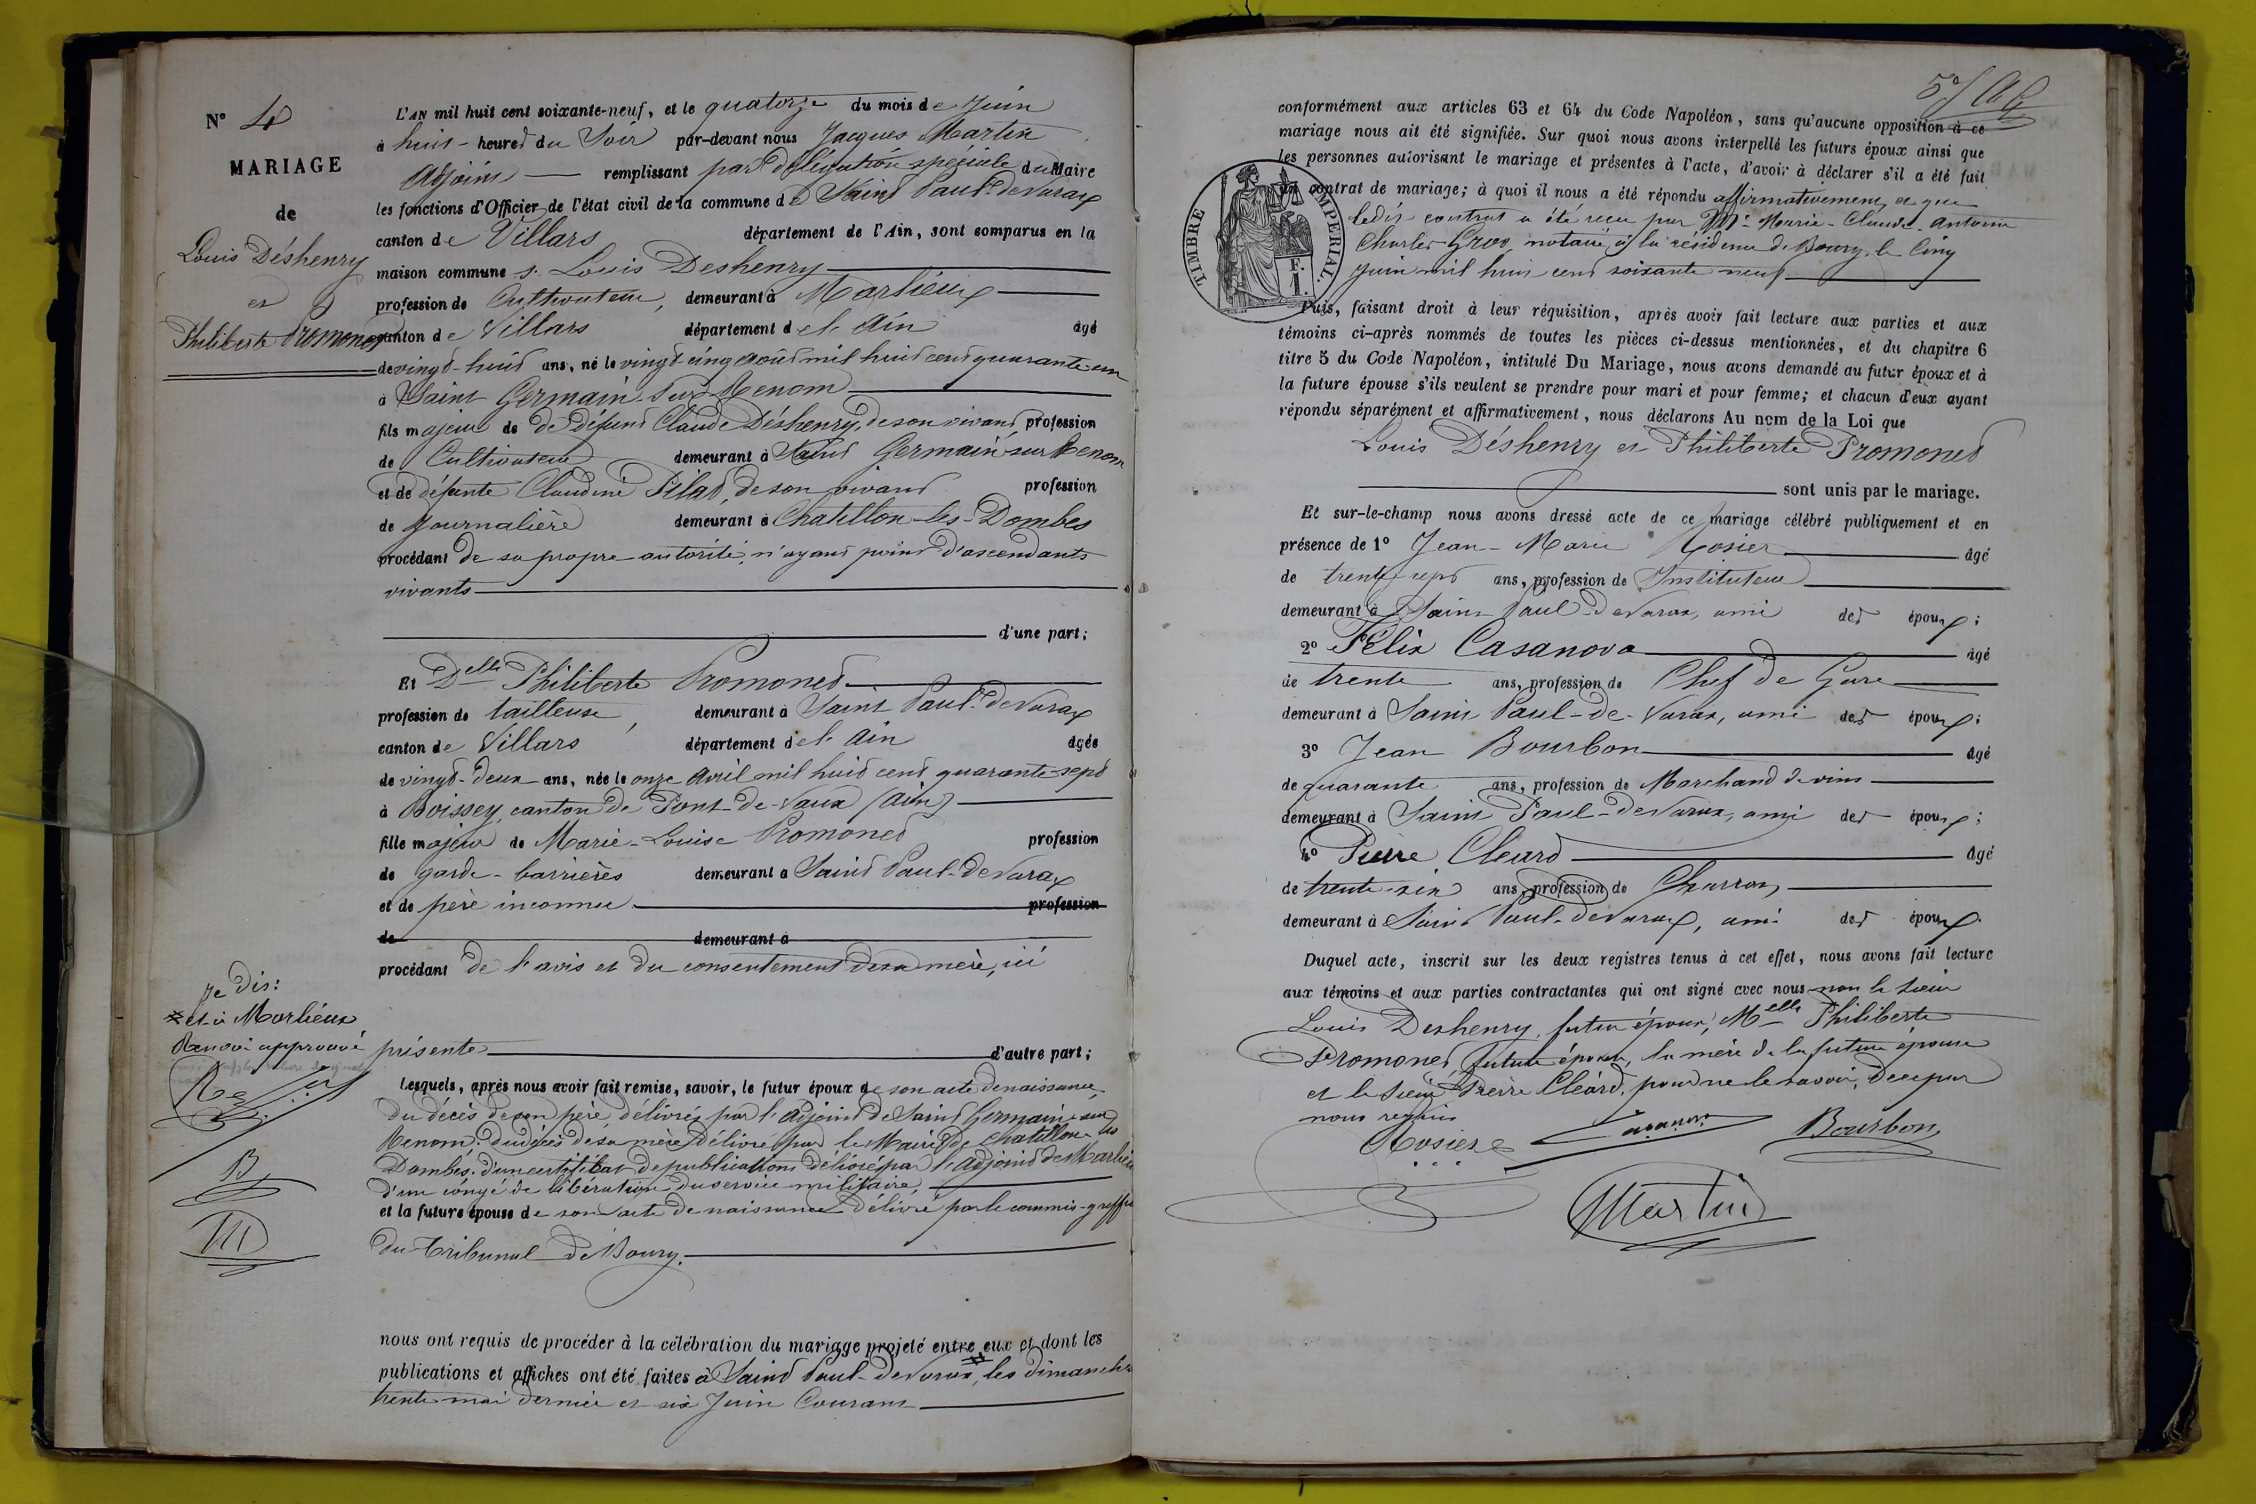 N° 4
MARIAGE
de
Louis Déshenry
et
Philiberte Promonet
L'AN mil huit cent soixante-neuf, et le quatorze du mois de Juin
à huit heures du Soir par-devant nous Jacques Martin
Adjoint remplissant par délégation spéciale du Maire
les fonctions d'Officier de l'état civil de la commune de Saint Paul-de Varax
canton de Villars département de l'Ain, sont comparus en la
maison commune s. Louis Deshenry
profession de Cultivateur, demeurant à Marlieux
canton de Villars département de l'Ain âgé
de vingt-huit ans, né le vingt cinq août mil huit cent quarante un
à Saint Germain sur Renom
fils majeur de de défunt Claude Déshenry, de son vivant profession
de Cultivateur demeurant à Saint Germain sur Renom
et de défunte Claudine Pilat, de son vivant profession
de journalière demeurant à Chatillon-les-Dombes
procédant de sa propre autorité, n'ayant point d'ascendants
vivants
d'une part;
Et Delle Philiberte Promonet
profession de tailleuse, demeurant à Saint Paul-de Varax
canton de Villars département de l'Ain âgée
de vingt-deux ans, née le onze avril mil huit cent quarante-sept
à Boissey, canton de Pont-de-Vaux (Ain)
fille majeure de Marie-Louise Promonet profession
de garde-barrières demeurant à Saint Paul-de Varax
et de père inconnu profession
de demeurant à
procédant de l'avis et du consentement de sa mère, ici
présente d'autre part;
Je dis:
et à Marlieux
Renvoi approuvé
Lesquels, après nous avoir fait remise, savoir, le futur époux de son acte de naissance,
du décès de son père délivrés par l'adjoint de Saint Germain-sur
Renom, du décès de sa mère délivré par le Maire de Chatillon-les
Dombes, d'un certificat de publications délivré par l'adjoint de Marlieux
d'un congé de libération du service militaire,
et la future épouse de son acte de naissance délivré par le commis-greffier
du tribunal de Bourg.
nous ont requis de procéder à la célébration du mariage projeté entre eux et dont les
publications et affiches ont été faites à Saint Paul-de Varax, les dimanches
trente mai dernier et six Juin Courant
conformément aux articles 63 et 64 du Code Napoléon, sans qu'aucune opposition à ce
mariage nous ait été signifiée. Sur quoi nous avons interpellé les futurs époux ainsi que
les personnes autorisant le mariage et présentes à l'acte, d'avoir à déclarer s'il a été fait
un contrat de mariage; à quoi il nous a été répondu affirmativement, et que
TIMBRE IMPERIAL.
F.
1
ledit contrat a été reçu par Me Marie-Claude-Antoine
Charles Gros, notaire à la résidence de Bourg, le Cinq
Juin mil huit cent soixante neuf
Puis, faisant droit à leur réquisition, après avoir fait lecture aux parties et aux
témoins ci-après nommés de toutes les pièces ci-dessus mentionnées, et du chapitre 6
titre 5 du Code Napoléon, intitulé Du Mariage, nous avons demandé au futur époux et à
la future épouse s'ils veulent se prendre pour mari et pour femme; et chacun d'eux ayant
répondu séparément et affirmativement, nous déclarons Au nom de la Loi que
Louis Déshenry et Philiberte Promonet
sont unis par le mariage.
Et sur-le-champ nous avons dressé acte de ce mariage célébré publiquement et en
présence de 1° Jean-Marie Rosier âgé
de trente-sept ans, profession de Instituteur
demeurant à Saint Paul-de Varax, ami des époux;
2° Félix Casanova âgé
de trente ans, profession de Chef de Gare
demeurant à Saint Paul-de-Varax, ami des époux;
3° Jean Bourbon âgé
de quarante ans, profession de Marchand de vins
demeurant à Saint Paul-de Varax, ami des époux;
4° Pierre Cléard âgé
de trente-six ans, profession de Charron,
demeurant à Saint Paul-de Varax, ami des époux.
Duquel acte, inscrit sur les deux registres tenus à cet effet, nous avons fait lecture
aux témoins et aux parties contractantes qui ont signé avec nous non le sieur
Louis Deshenry, futur époux, Melle Philiberte
Promonet, future épouse, la mère de la future épouse
et le sieur Pierre Cléard, pour ne le savoir, de ce par
nous requis
Rosier Casanova Bourbon
Martin